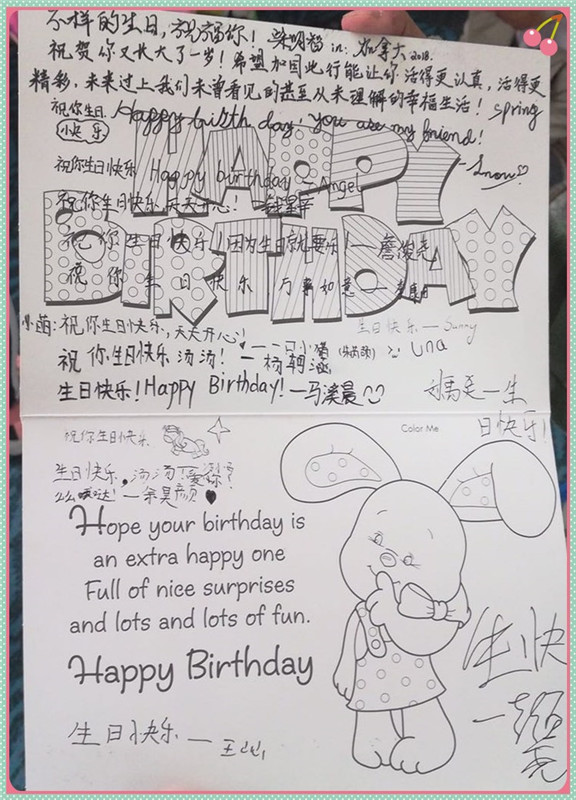 不一样的生日,祝福你! 朱明智 in: 加拿大 2018.
祝贺你又长大了一岁!希望加国此行能让你活得更认真,活得更
精彩,未来过上我们未曾看见的甚至从未理解的幸福生活! spring
祝你生日
快乐
Happy birth day, you are my friend!
—Snow
祝你生日快乐 Happy birthday — Angel
HAPPY
祝你生日快乐,天天开心!
BIRTHDAY
祝你生日快乐!因为生日就要乐!——詹浚尧
祝你生日快乐 万事如意——
生日快乐—Sunny
小萌:祝你生日快乐,天天开心!
—一只小猪
una
祝你生日快乐 汤汤! —杨翱涵
生日快乐!Happy Birthday!—马溪晨
生
日快乐!
祝你生日快乐
Color Me
生日快乐,汤汤!爱你
么么哒!—余昊颜
Hope your birthday is
an extra happy one
Full of nice surprises
and lots and lots of fun.
Happy Birthday
生快
生日快乐—